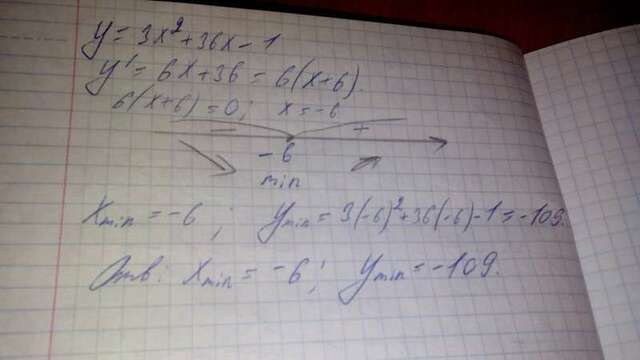 y = 3x² + 36x - 1
y' = 6x + 36 = 6(x+6).
6(x+6) = 0; x = -6
- +
-6
min
Xmin = -6; Ymin = 3(-6)² + 36(-6) - 1 = -109.
Отв: Xmin = -6; Ymin = -109.